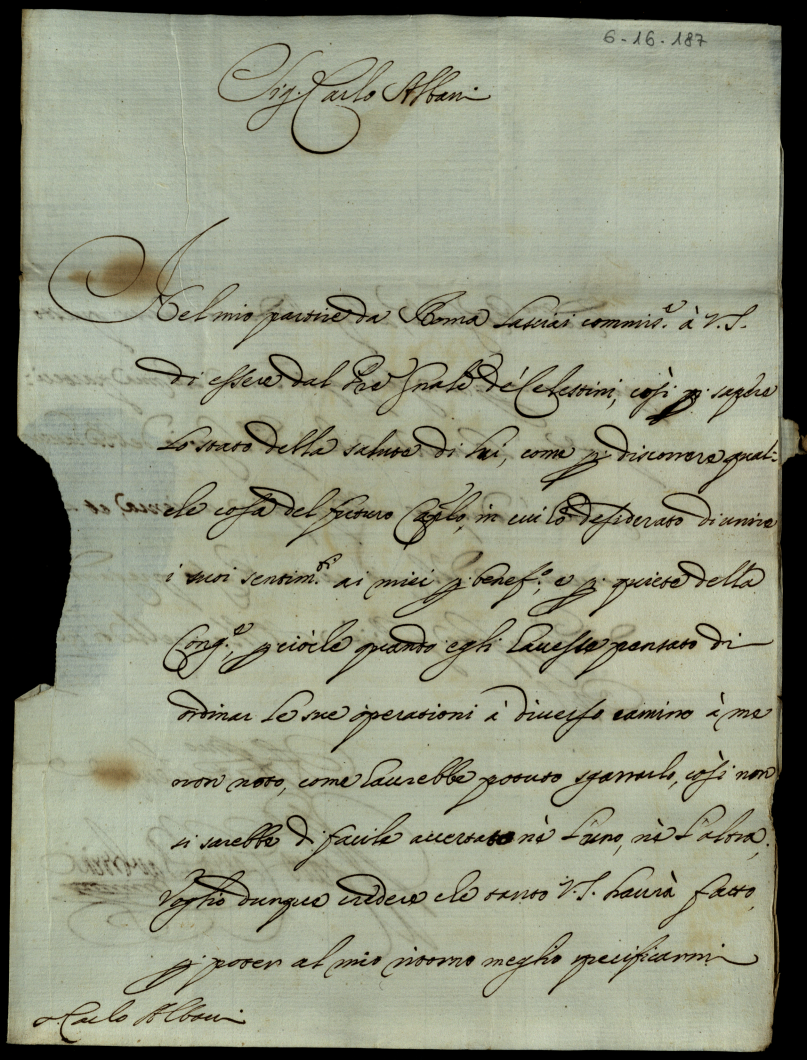 6-16-187
Sig. Carlo Albani
Nel mio partire da Roma lasciai commis.e à V.S.
di essere dal Pre Gnale de' Celestini, così p. sapere
lo stato della salute di lui, come p. discorrere qual-
che cosa del futuro Caplo, in cui hò desiderato di unire
i suoi sentim.ti ai miei p. benef.o, e p. quiete della
Cong.e, p cioche quando egli havesse pensato di
ordinar le sue operationi à diverso camino à me
non noto, come havrebbe potuto sgarrarlo, così non
si sarebbe di facile accertato nè l'uno, nè l'altro,
Voglio dunque credere che tanto V.S. havrà fatto,
p. poter al mio ritorno meglio specificarmi
Carlo Albani